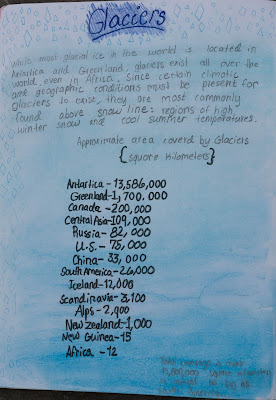 Glaciers
While most glacial ice in the world is located in
Antartica and Greenland, glaciers exist all over the
world, even in Africa. Since certain climatic
and geographic conditions must be present for
glaciers to exist, they are most commonly
found above snow line: regions of high
winter snow and cool summer temperatures.
Approximate area coverd by Glaciers
{square kilometers}
Antartica - 13,586,000
Greenland - 1,700,000
Canada - 200,000
Central Asia - 109,000
Russia - 82,000
U.S. - 75,000
China - 33,000
South America - 26,000
Iceland - 12,000
Scandinavia - 3,100
Alps - 2,900
New Zealand - 1,000
New Guinea - 15
Africa - 12